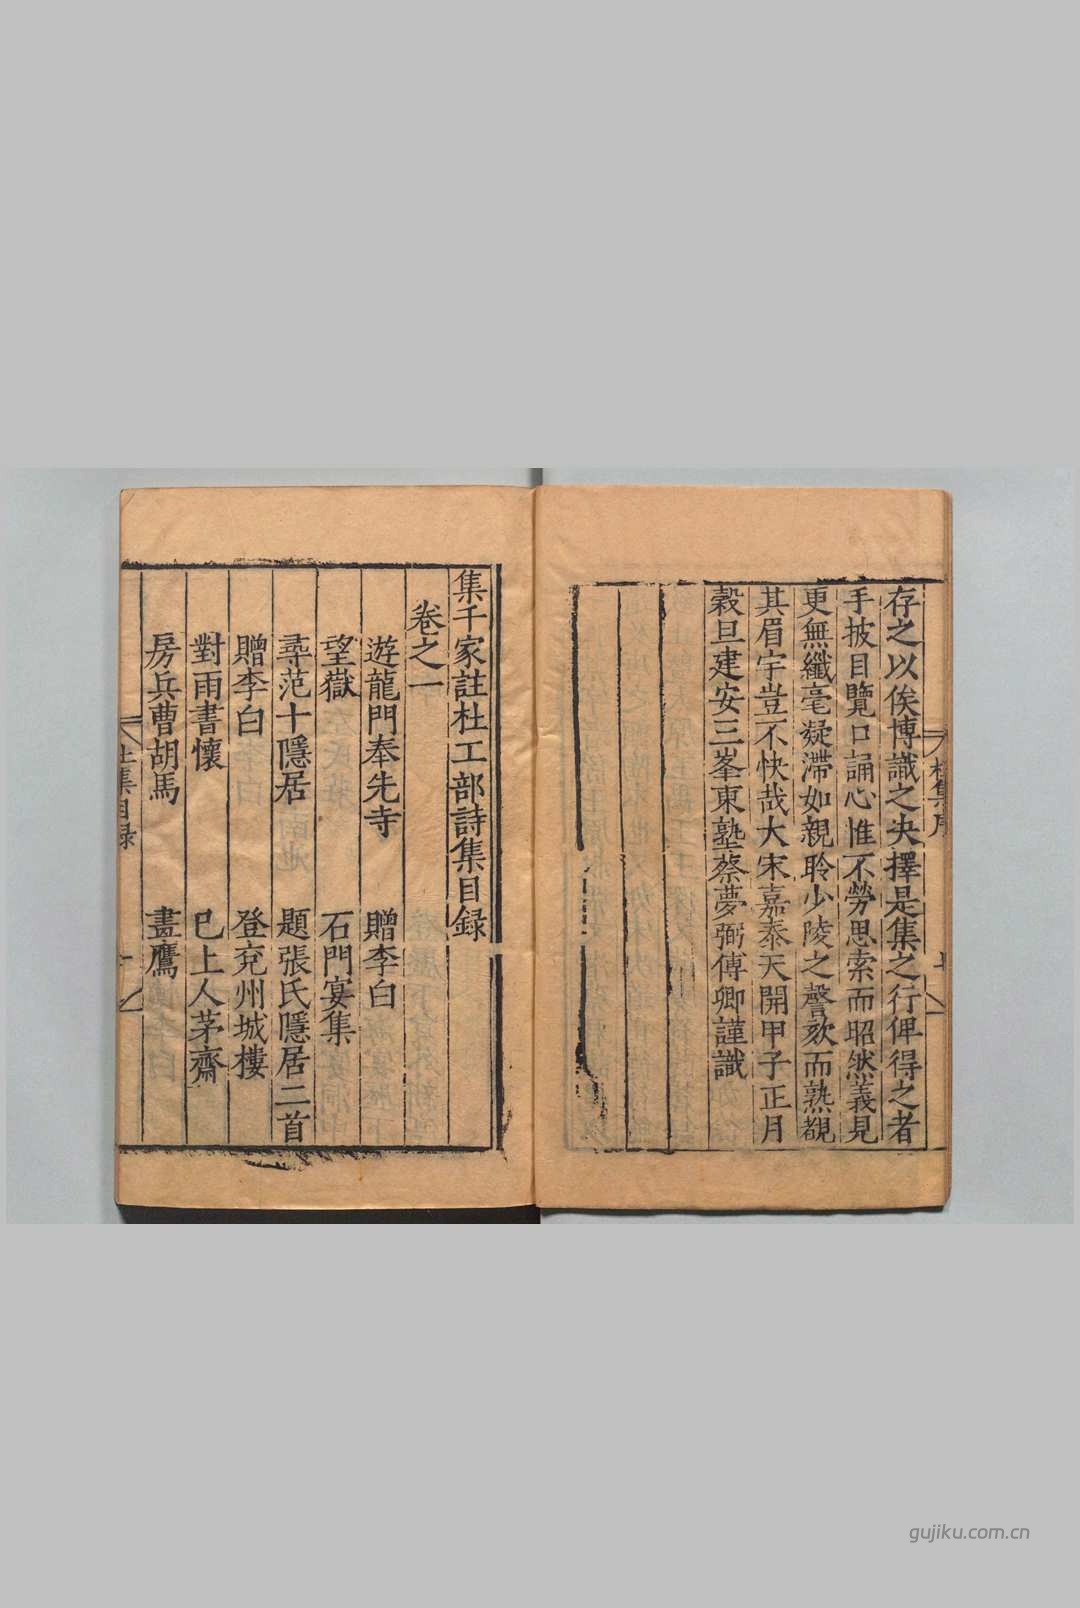 存之以俟博識之决擇是集之行俾得之者
手披目覽口誦心惟不勞思索而昭然義見
更無纖毫凝滯如親聆少陵之謦欬而熟覩
其眉宇豈不快哉大宋嘉泰天開甲子正月
穀旦建安三峯東塾蔡夢弼傅卿謹識
集千家註杜工部詩集目録
卷之一
遊龍門奉先寺　贈李白
望嶽　石門宴集
尋范十隱居　題張氏隱居二首
贈李白　登兖州城樓
對雨書懷　巳上人茅齋
房兵曹胡馬　畫鷹
杜集目録
gujiku.com.cn